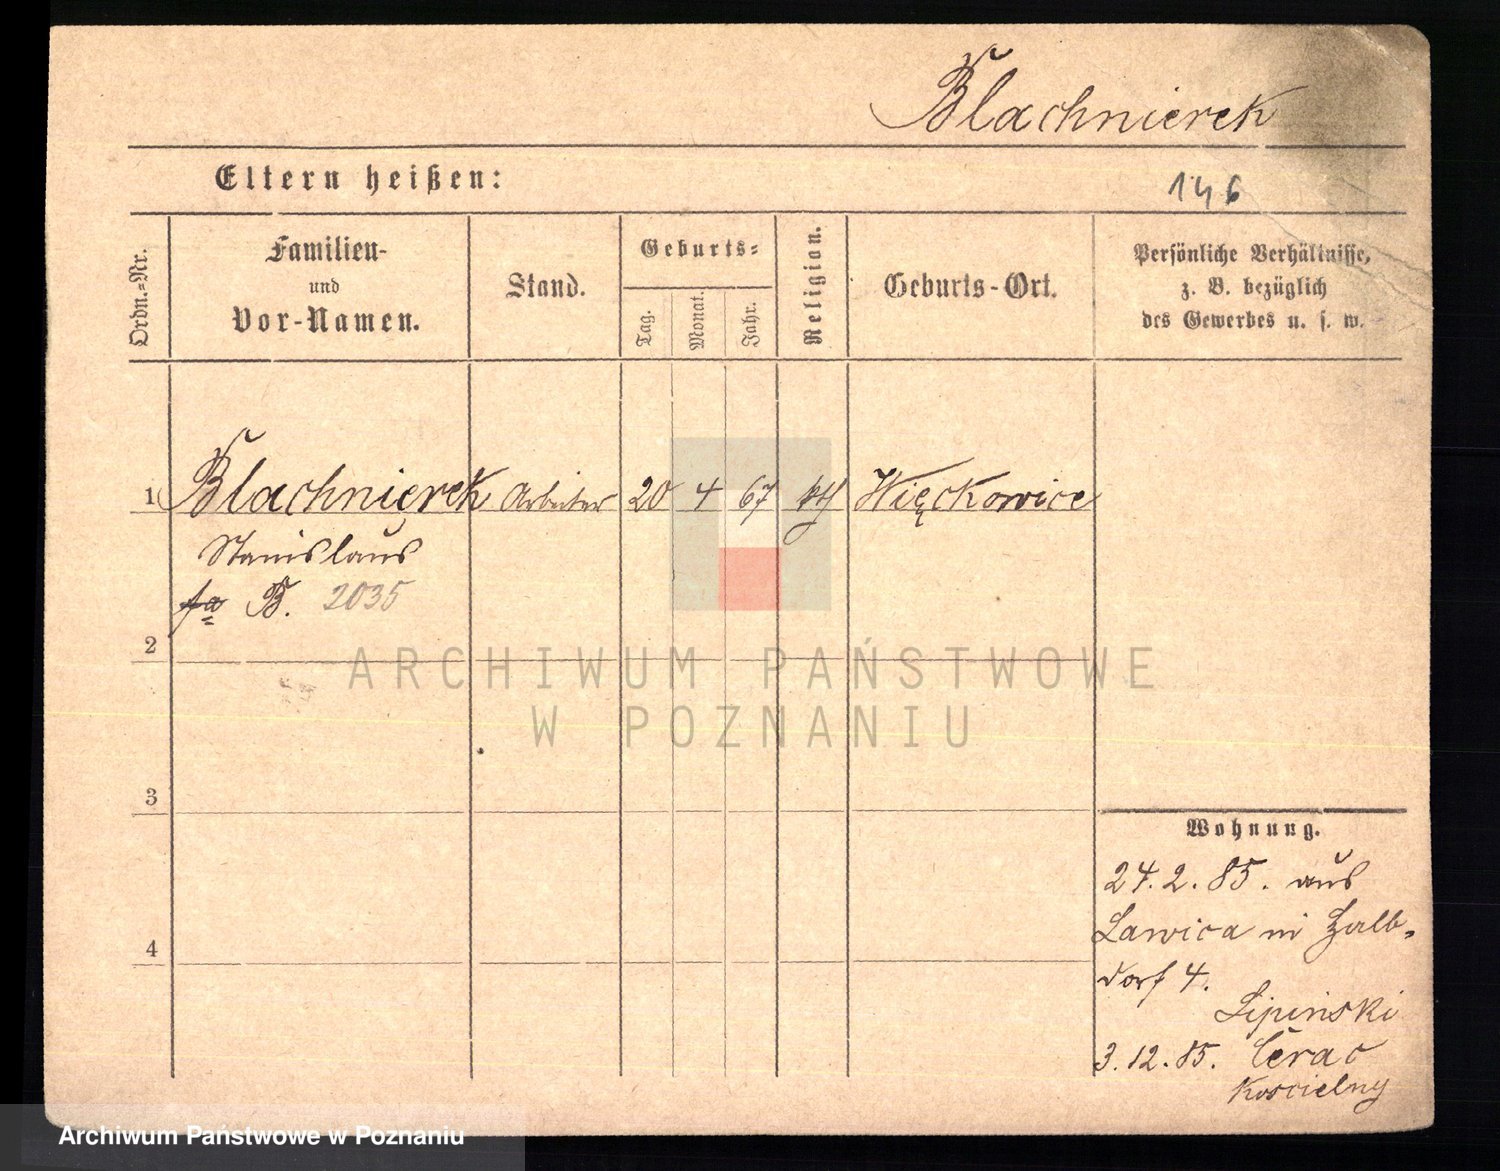 Blachnierek
Eltern heißen:
146
Ordn.-Nr.
Familien-
und
Vor-Namen.
Stand.
Geburts-
Tag.
Monat.
Jahr.
Religion.
Geburts-Ort.
Persönliche Verhältnisse,
z. B. bezüglich
des Gewerbes u. s. w.
1 Blachnierek Arbeiter 20 4 67 kth Więckowice
Stanislaus
fa B. 2035
2
ARCHIWUM PAŃSTWOWE
W POZNANIU
3
Wohnung.
24.2.85. aus
Lawica in
4
dorf 4.
Lipiński
3.12.85. Cerac
Koscielny
Archiwum Państwowe w Poznaniu